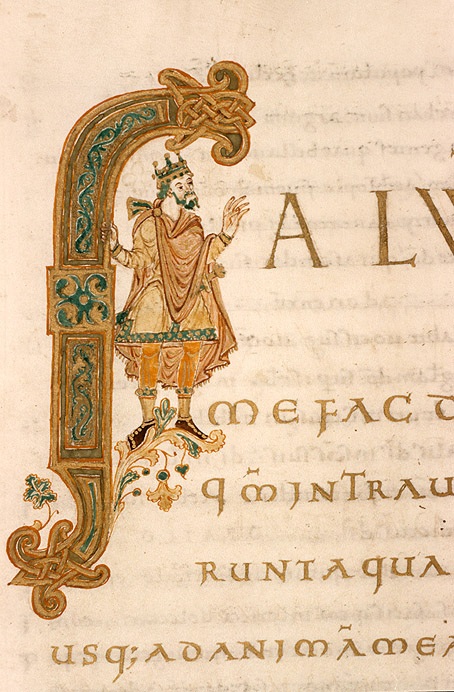 SALV
ME FAC D
qm̄ INTRAU
RUNT AQUA
USQ; AD ANIMĀ MEA